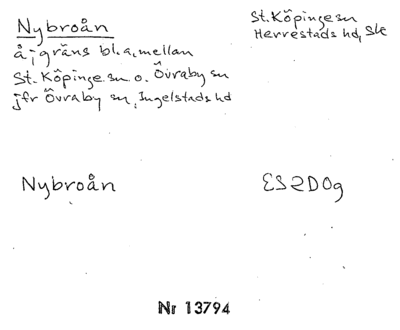 Nybroån
å; gräns bl.a. mellan
St. Köpinge sn o. Övraby sn
jfr Övraby sn, Ingelstads hd
St. Köpinge sn
Herrestads hd, Sk
Nybroån
ES2D0g
Nr 13794